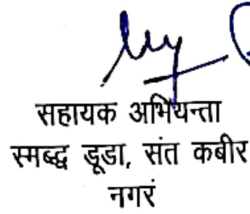 सहायक अभियन्ता
स्मबद्ध डूडा, संत कबीर
नगरं